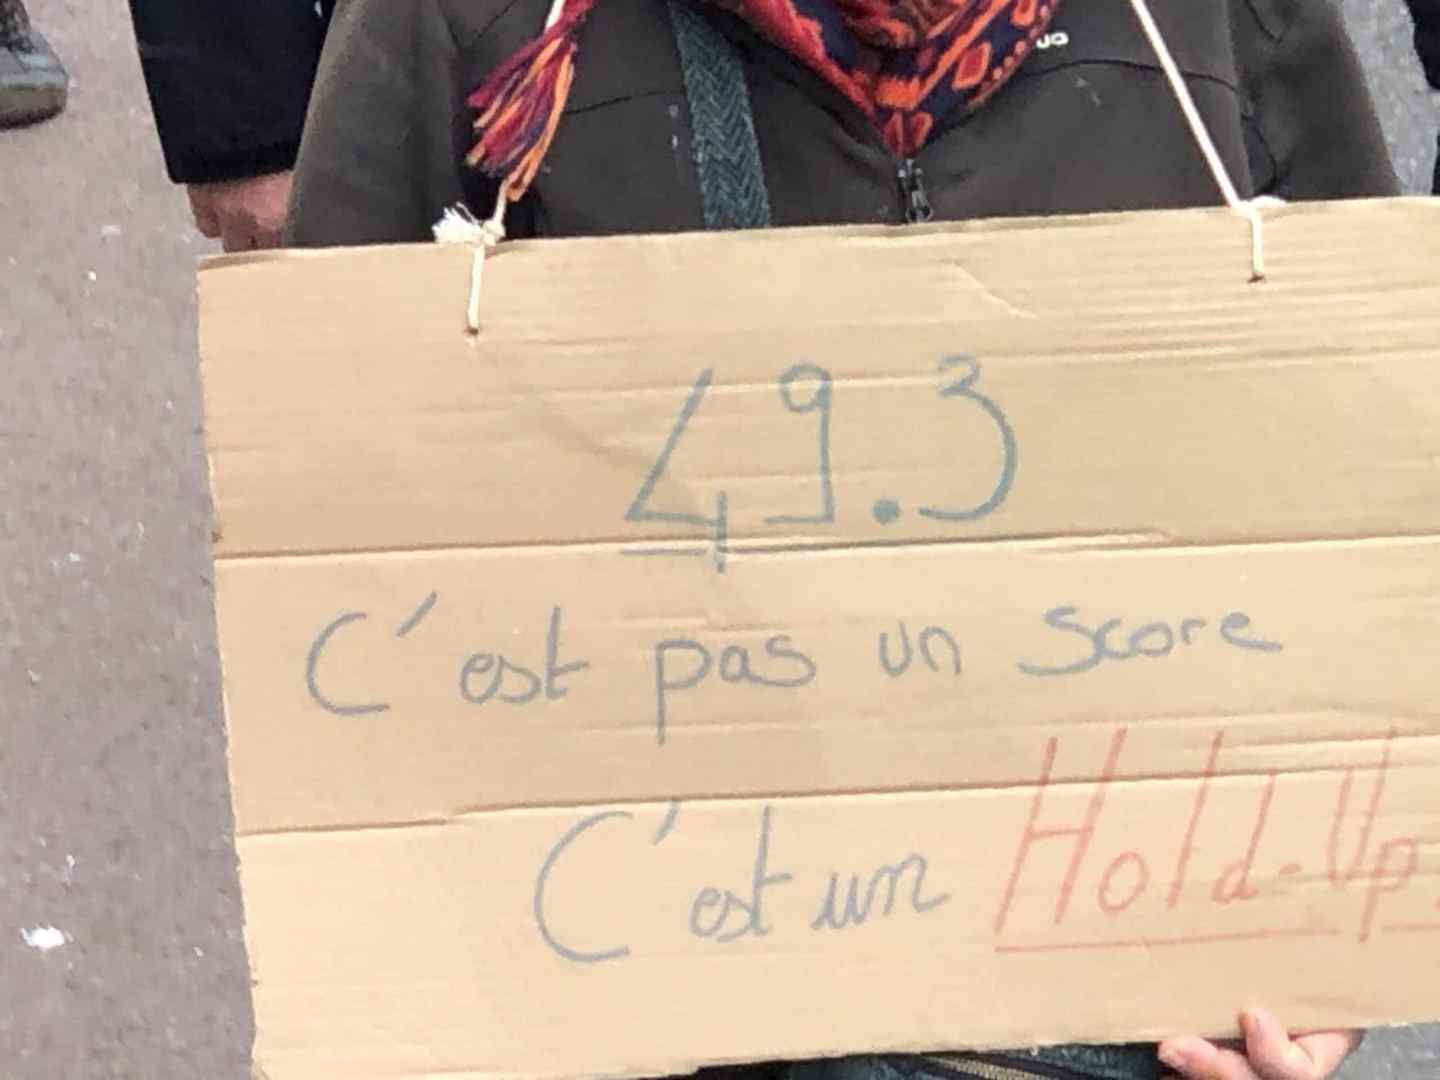 49.3
C'est pas un score
C'est un Hold-Up